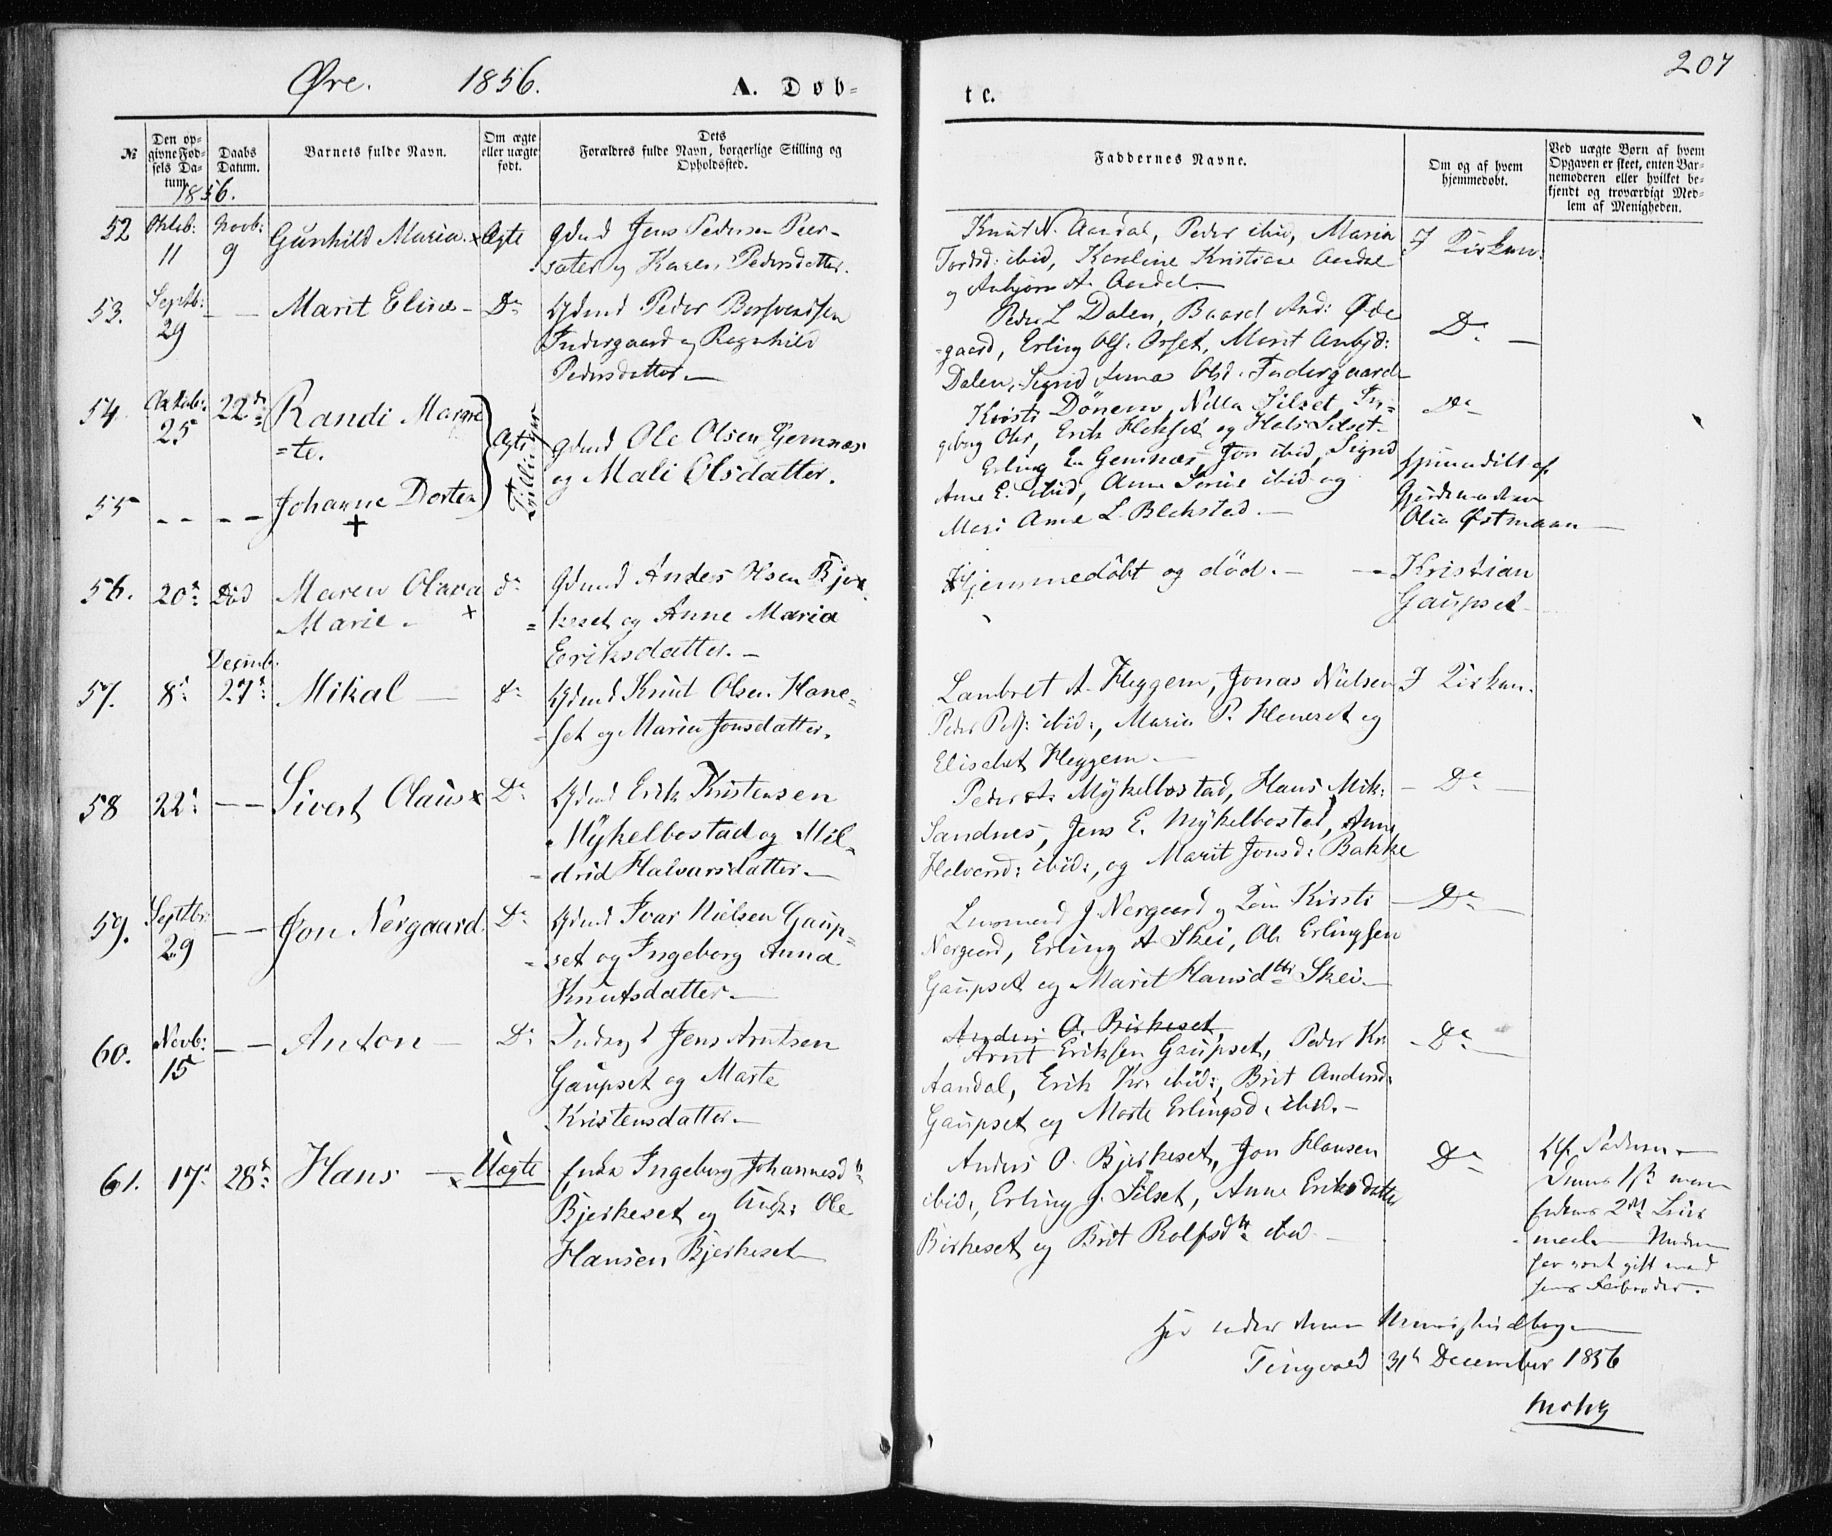 207
Øre. 1856. A. Døb-
te.
№
Den op-
givne Fød-
sels Da-
tum.
Daabs
Datum.
Barnets fulde Navn.
Om ægte
eller uægte
født.
Dets
Forældres fulde Navn, borgerlige Stilling og
Opholdssted.
Faddernes Navne.
Om og af hvem
hjemmedøbt.
Ved uægte Børn af hvem
Opgaven er skeet, enten Bar-
nemoderen eller hvilket be-
kjendt og troværdigt Med-
lem af Menigheden.
1856.
52 Oktob: 11 Novb: 9 Gunhild Maria Ægte
Gdmd Jens Pedersen
og Karen Pedersdatter.
Knut N. Aandal, Peder ibid, Maria
Tordsd: ibid, Karoline Kristiane Aandal
og Anbjørn A. Aandal.
I Kirken.
53. Septb: 29 — — Marit Eline Do
Gdmd Peder
Indergaard og Ragnhild
Pedersdatter.
Peder L Dalen, Baard And: Øde
gaard, Erling Ols. Orset, Marit Anbjd:
Dalen, Sigrid Anna Olsd. Indergaard
Do
54. Oktob: 25 22de Randi Margre
=te.
Ægte Tvillinger
Gdmd Ole Olsen Gemnæs
og Mali Olsdatter.
Silset, In-
geborg Erik og Silset
Do
55 -- -- Johanne Dorten
+
Erling E. Gemnæs, Jon ibid, Sigrid
Ane E. ibid, Anne ibid og
Mari Ane L. Blekstad.
Hjemmedøbt af
Gjordemoderen
Olia Østmann
56. 20de Død Maren Olava
Marie. + do
Gdmd Anders Olsen Bjer
keset og Anne Maria
Eriksdatter.
Hjemmedøbt og død.
Kristian
Gaupset
57. 8de Decemb. 27de Mikal Do
Gdmd Knut Olsen Hane-
set og Maria Jonsdatter.
Lambret A. Heggem, Jonas Nielsen
Peder ibid:, Maria P. Haneset og
Elisabet Heggem.
I Kirken.
58 22de — — Sivert Olaus Do
Gdmd Erik Kristensen
Mykelbostad og Mil-
drid Halvarsdatter.
Peder Mykelbostad, Hans Mik:
Sandnes, Jens E. Mykelbostad, Anne
Halvorsd: ibid:, og Marit Jonsd: Bakke
Do
59. Septbr: 29 — — Jon Nergaard Do
Gdmd Ivar Nielsen Gaup-
set og Ingeborg Anna
Knutsdatter.
J. Nergaard og Kirsti
Nergaard, Erling A Skei, Ole Erlingsen
Gaupset og Marit Hansdtr Skei.
Do
60. Novb: 15 — — Anton Do
Inderst Jens Arntsen
Gaupset og Marte
Kristensdatter.
Anders O. Birkeset,
Arnt Eriksen Gaupset, Peder Kr.
Aandal, Erik Kr. ibid:, Brit Andersd:
Gaupset og Marte Erlingsd. ibid.
Do
61. 17de 28de Hans Uægte
Enke Ingeborg Johannesdtr
Bjerkeset og Ungk: Ole
Hansen Bjerkeset
Anders O. Bjerkeset, Jon Hansen
ibid:, Erling J. Silset, Anne Eriksdatter
Birkeset og Brit Rolfsdtr ibid
Do
Af Faderen
1st men
Enkens 2det Leier
maal Hun
har været gift med
hans Farbroder.
Tingvold 31te December 1856